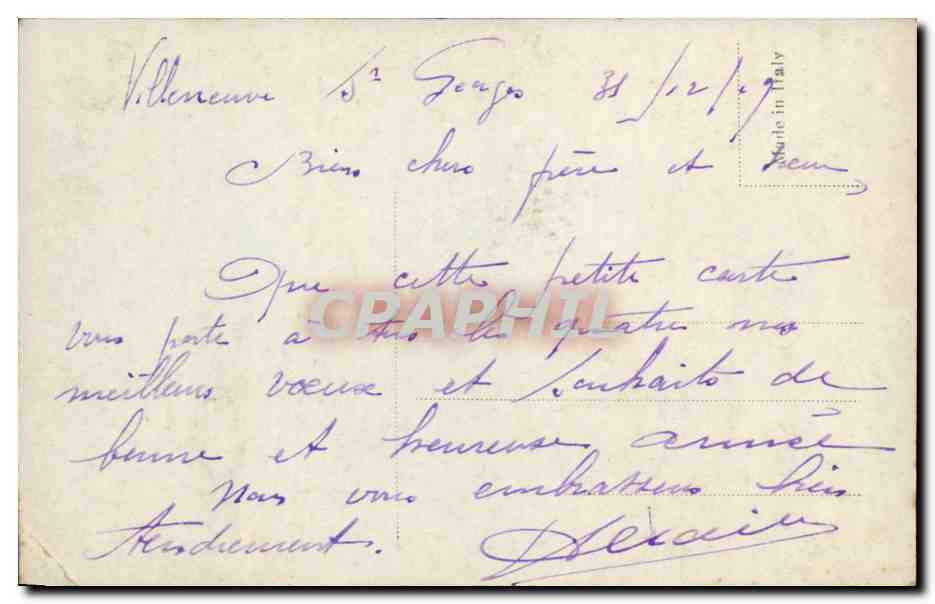 Villeneuve St Georges 31/12/
Made in Italy
Bien chers frère et sœur,
Que cette petite carte
vous porte à tous les quatre nos
meilleurs vœux et souhaits de
bonne et heureuse année
Nous vous embrassons bien
tendrement.
CPAPHIL